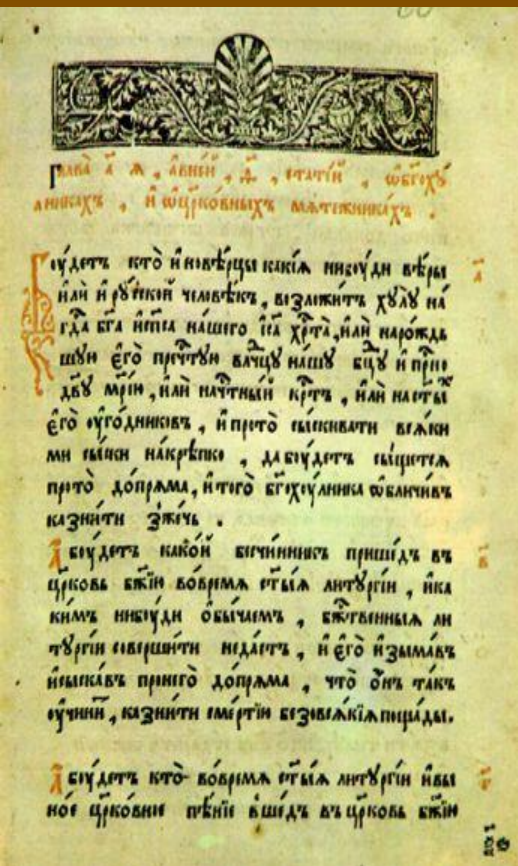 Глава̀ а҃ я , а в не́й , ѳ҃ , стате́й , ѡ бг҃оху́
лникахъ , и҆ ѡ цр҃ковныхъ мѧте́жникахъ .
Боу́детъ кто̀ и҆нове́рцы какі́ѧ нибоу́ди ве́ры
и҆лѝ и҆ ру́сской челове́къ , возложи́тъ хулу̀ на
гд҃а бг҃а и҆ сп҃са на́шего і҆с҃а хр҃та̀ , и҆лѝ на ро́ждь
шую е҆го̀ пречт҃ую влд҃чцу на́шу бц҃у и҆ прн҃о
дв҃у мр҃і́ю , и҆лѝ на чт҃ны́й кр҃тъ , и҆лѝ на ст҃ы́х
е҆го̀ оу҆го́дниковъ , и҆ про то̀ сы́скивати всѧ́ки
ми сы́ски накре́пко , да боу́детъ сы́щетсѧ
про то̀ до́прѧма , и҆ того̀ бг҃охоу́лника ѡ҆бличи́въ
казни́ти зже́чь .
А҆ боу́детъ како́й безчи́нникъ прише́дъ въ
цр҃ковь бж҃ію во вре́мѧ ст҃ы́ѧ литургі́и , и҆ ка
ки́мъ нибоу́ди ѻ҆бы́чаемъ , бж҃ственныѧ ли
тургі́и соверши́ти не да́стъ , и҆ е҆го̀ и҆зыма́въ
и҆ сыска́въ про него̀ до́прѧма , что̀ ѻ҆нъ та́къ
оу҆чини́тъ , казни́ти сме́ртію безо всѧ́кіѧ поща́ды .
А҆ боу́детъ кто̀ во вре́мѧ ст҃ы́ѧ литургі́и и҆ в ы
но́е цр҃ковное пе́ніе вше́дъ въ цр҃ковь бж҃ію